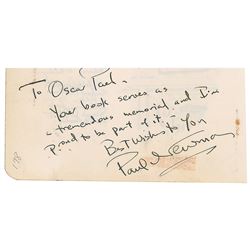 To Oscar
Your book serves as
a tremendous memorial and I'm
proud to be part of it.
Best Wishes to You
Paul Newman